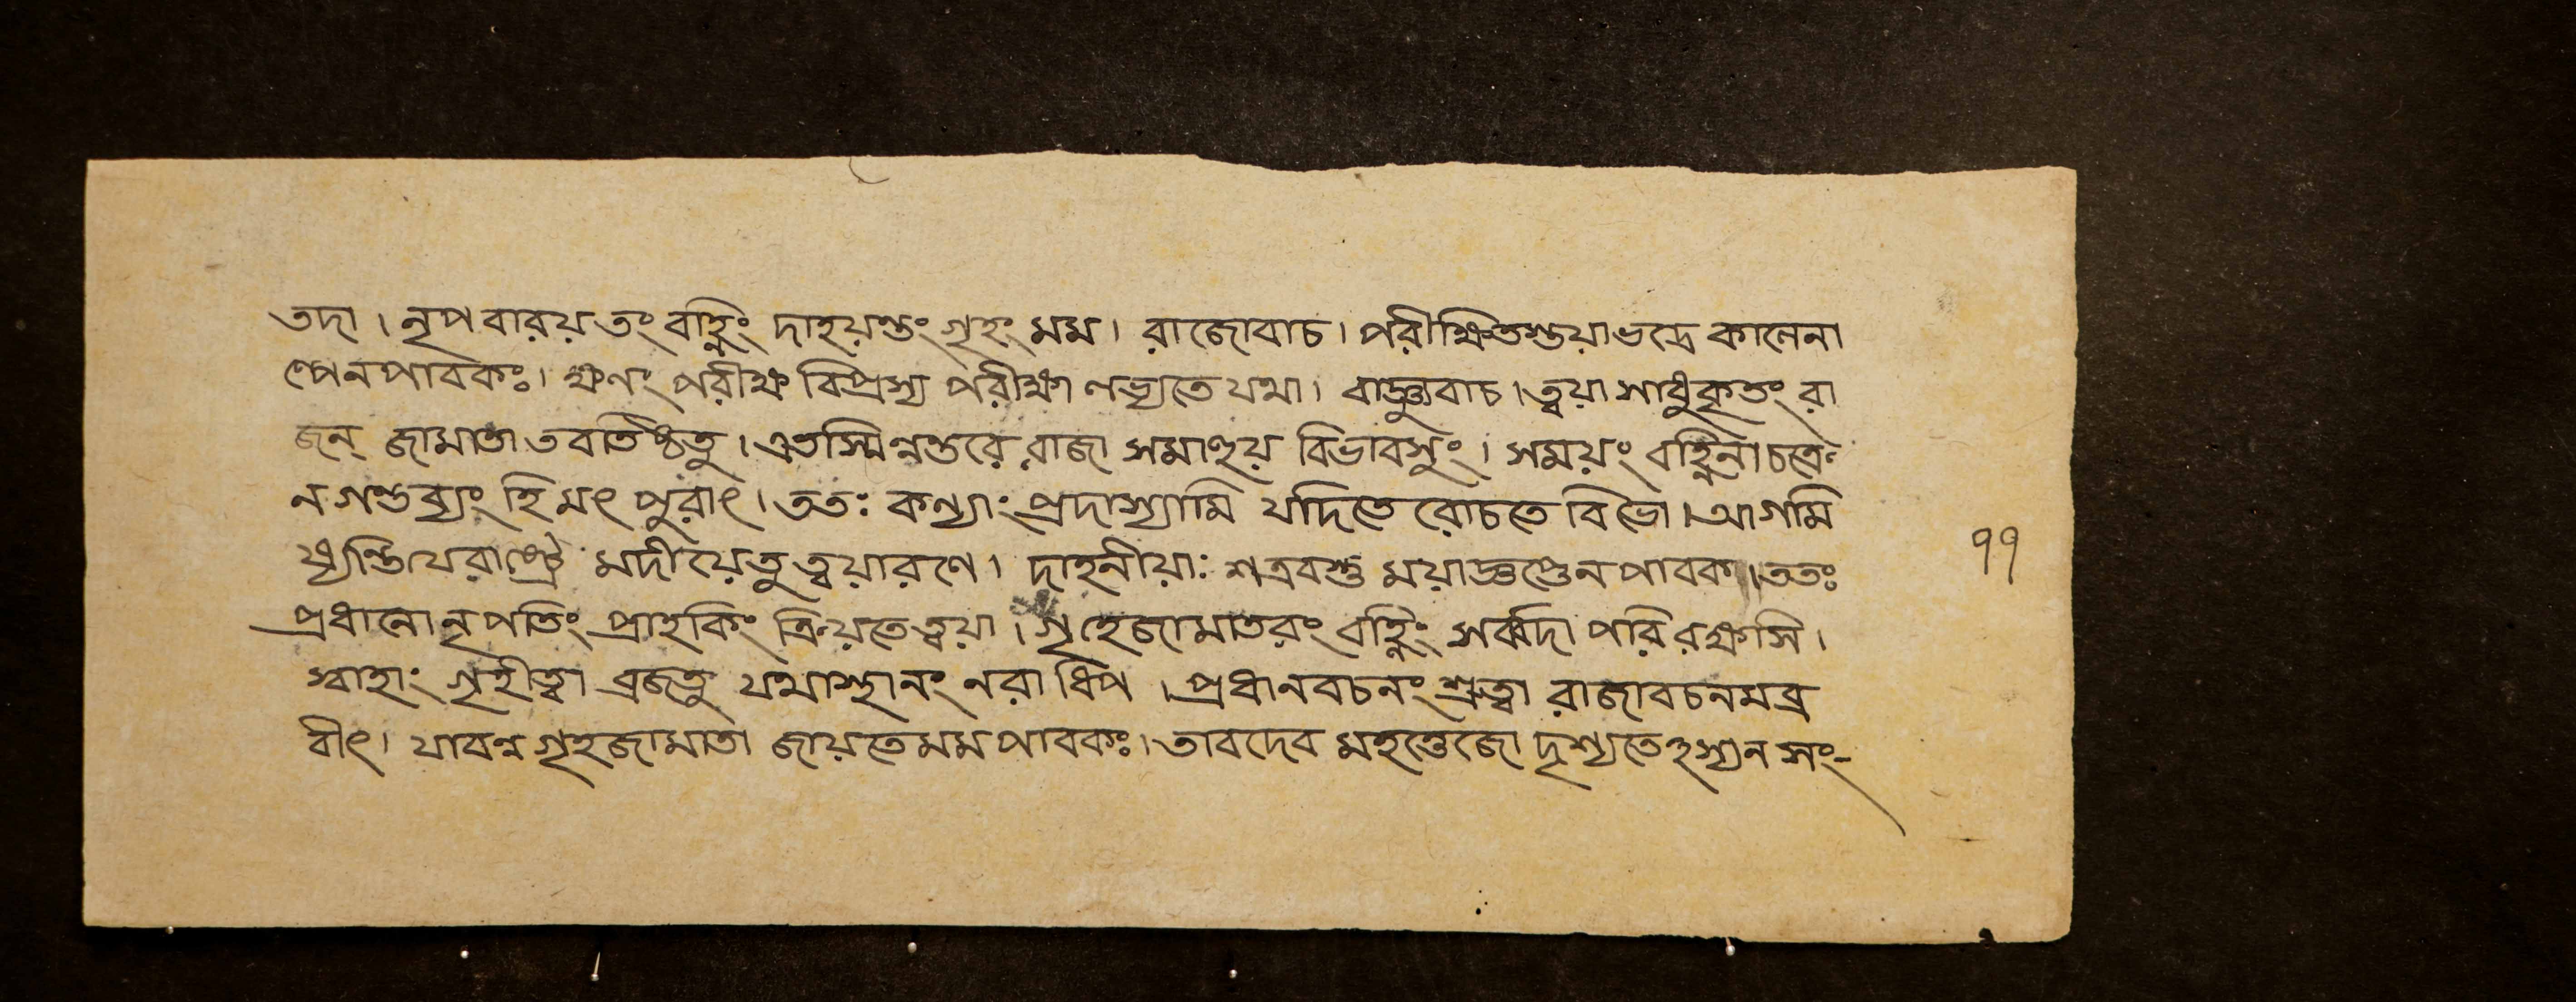 তদা । নৃপ বারয় তং বহ্নিং দাহয়ন্তং গৃহং মম । রাজোবাচ । পরীক্ষিতস্তয়া ভদ্রে কালেনা
ল্পেন পাবকঃ । ক্ষণং পরীক্ষ বিপ্রস্য পরীক্ষা লভ্যতে যথা । রাজ্ঞ্যুবাচ । ত্বয়া সাধু কৃতং রা
জন্ জামাতা তব তিষ্ঠতু । এতস্মিন্নন্তরে রাজা সমাহূয় বিভাবসুং । সময়ং বহ্নিনা চক্রে
ন গন্তব্যং হি মৎ পুরাৎ । ততঃ কন্যাং প্রদাস্যামি যদি তে রোচতে বিভো । আগমি
ষ্যন্তি যে রাষ্ট্রে মদীয়ে তু ত্বয়া রণে । দাহনীয়াঃ শত্রবস্তু ময়াজ্ঞপ্তেন পাবক । ততঃ
প্রধানো নৃপতিং প্রাহ কিং ক্রিয়তে ত্বয়া । গৃহে জামাতরং বহ্নিং সর্ব্বদা পরিরক্ষসি ।
স্বাহাং গৃহীত্বা ব্রজতু যথাস্থানং নরাধিপ । প্রধানবচনং শ্রুত্বা রাজা বচনমব্র
বীৎ । যাবন্ন গৃহজামাতা জায়তে মম পাবকঃ । তাবদেব মহত্তেজো দৃশ্যতেঽস্য ন সং-
৭৭